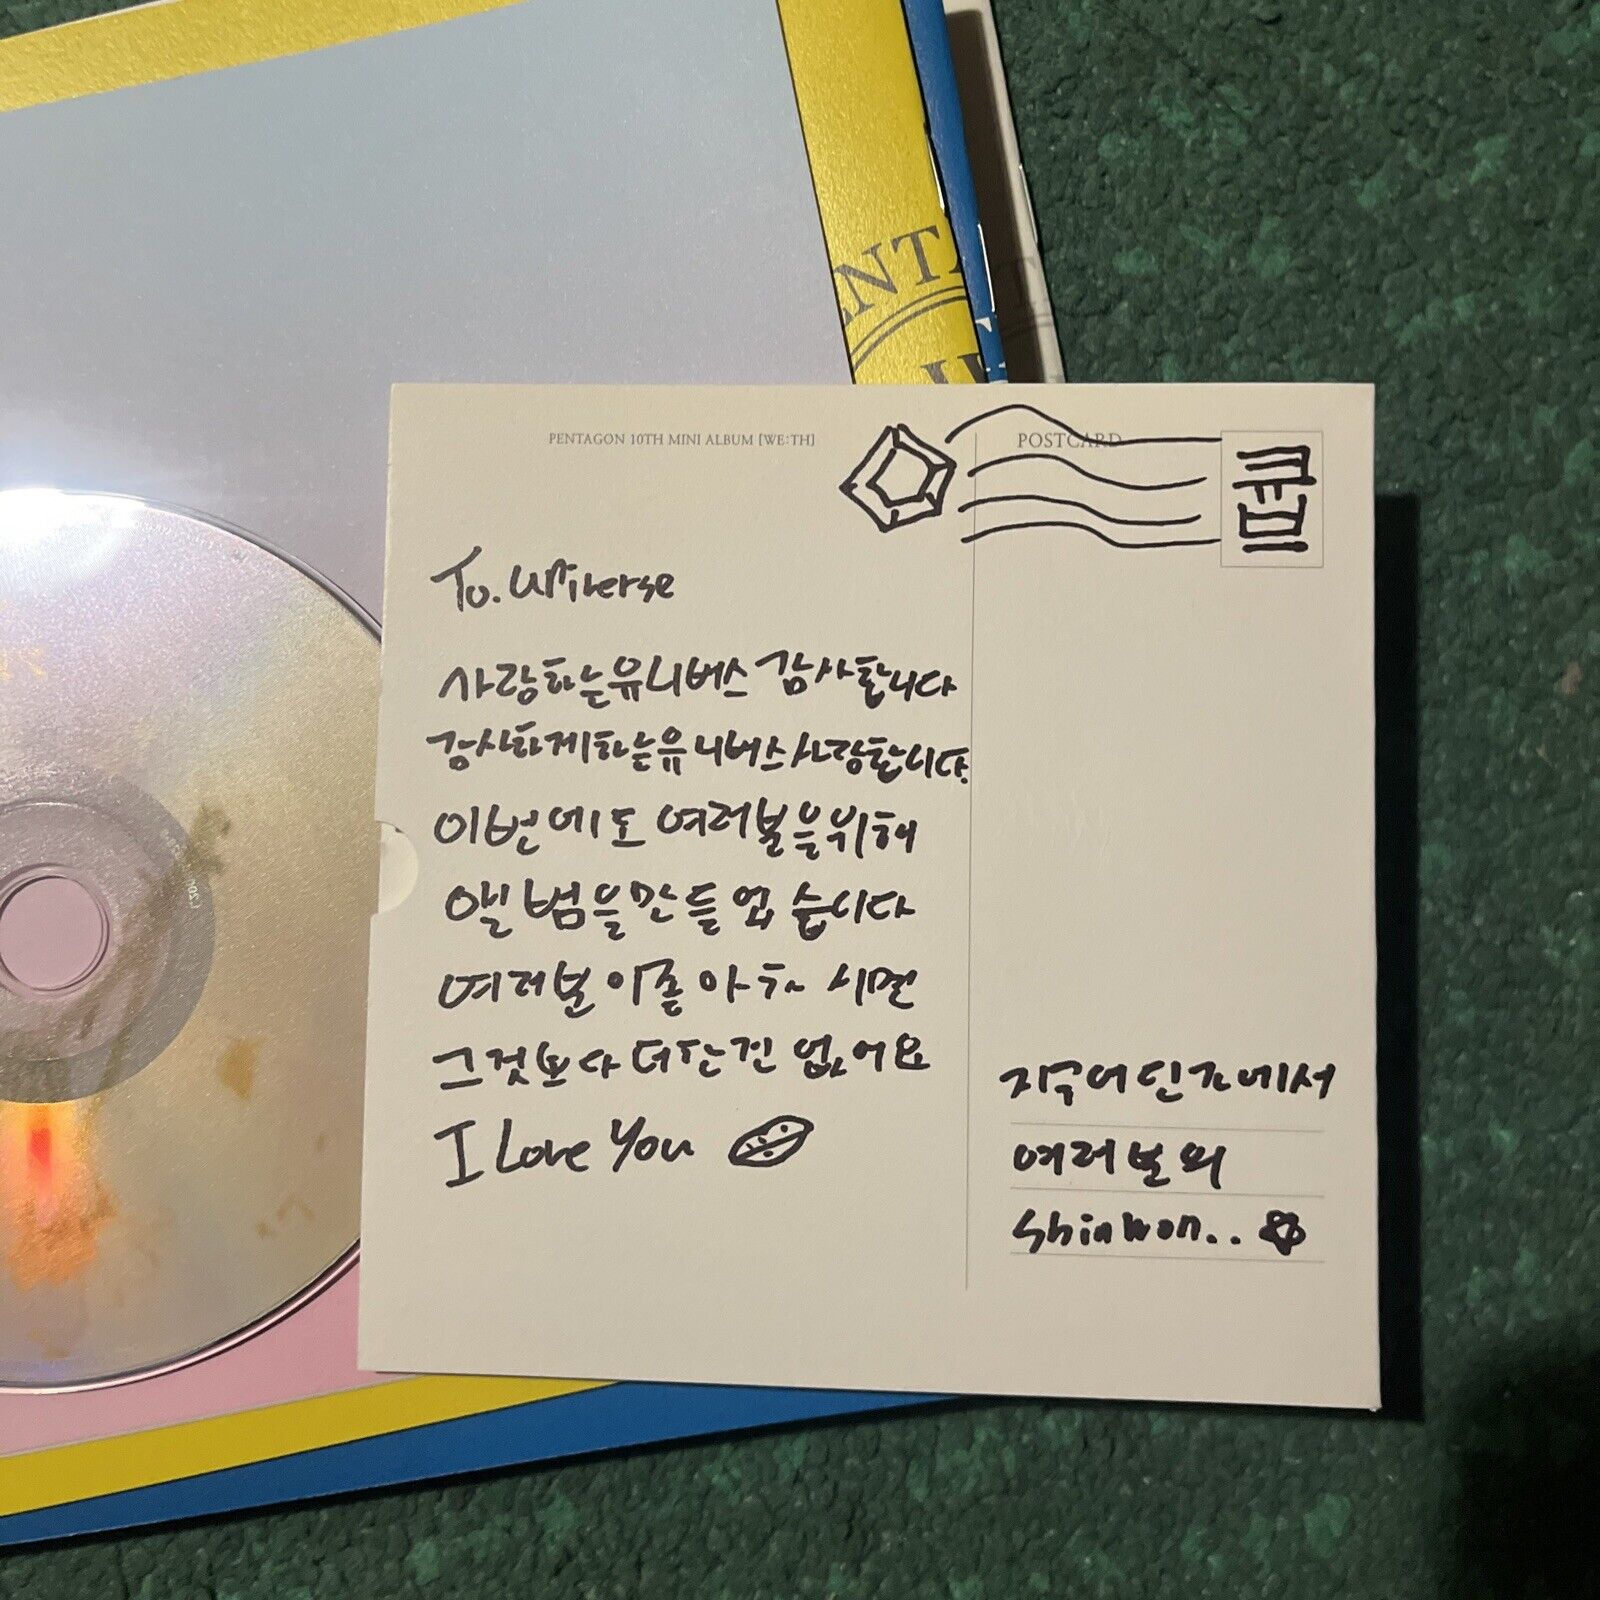 PENTAGON 10TH MINI ALBUM [WE:TH]
POSTCARD
To. Universe
사랑하는 유니버스 감사합니다
감사하게하는 유니버스 사랑합니다.
이번에도 여러분을 위해
앨범을 만들었습니다
여러분이 좋아하시면
그것보다 더한건 없어요
I Love You
지구 어딘가에서
여러분의
Shinwon..